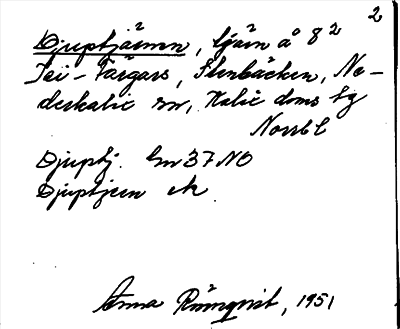 2
Djuptjärnen, tjärn å 8²
Pei-Färgars, Stenbäcken, Ne-
derkalix sn, Kalix doms lg
Norrb l
Djuptj. Gn 37 NO
Djuptjern ek
Anna Rönnqvist, 1951